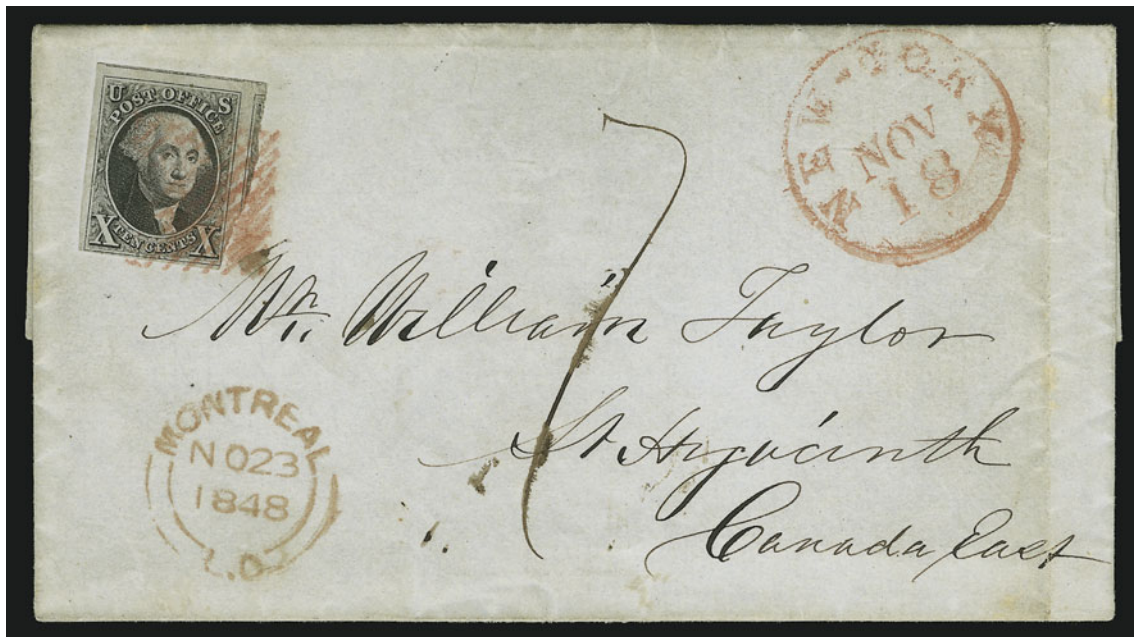 U S
POST OFFICE
X TEN CENTS X
NEW-YORK
NOV
18
7
Mr. William Taylor
St Hyacinth
Canada East
MONTREAL
NO 23
1848
L.C.